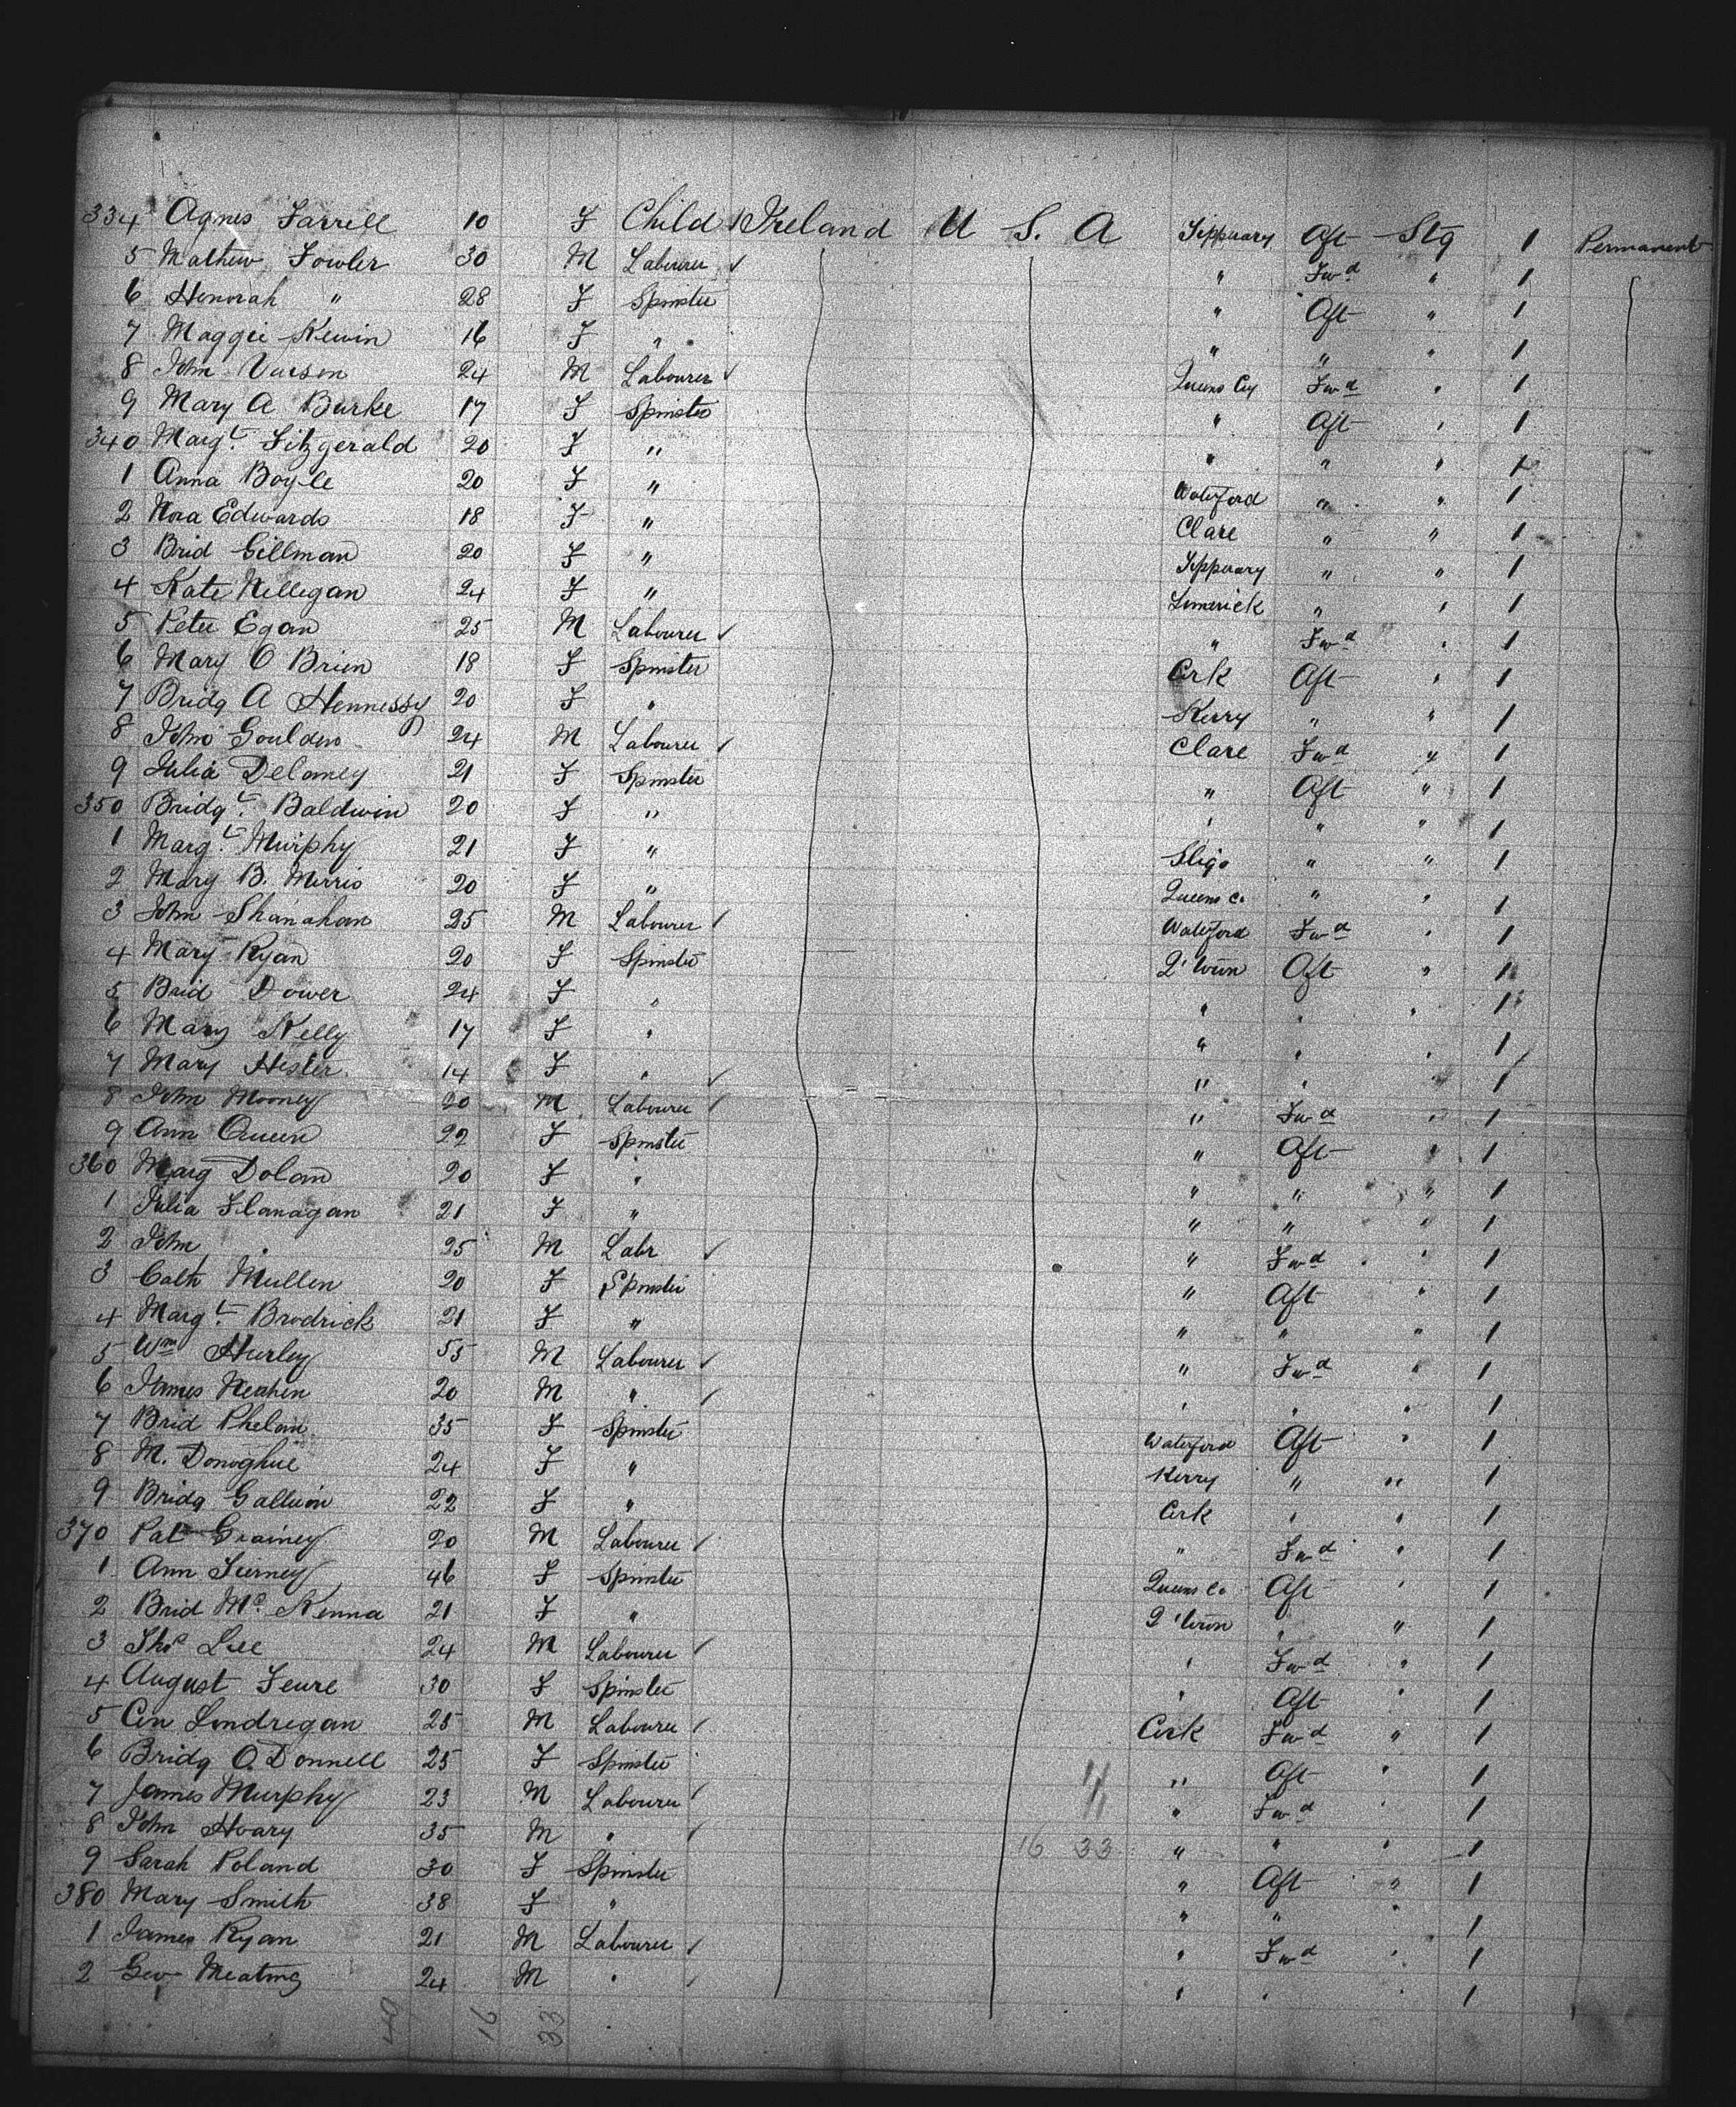 334 Agnes Farrell 10 F Child Ireland U S. A Tipperary Aft Stg 1 Permanent
5 Mathew Fowler 30 M Labourer ✓ " Fwd " 1
6 Honorah " 28 F Spinster " Aft " 1
7 Maggie Kewin 16 F " " " " 1
8 John 24 M Labourer ✓ Queens Cy Fwd " 1
9 Mary A Burke 17 F Spinster " Aft " 1
340 Margt. Fitzgerald 20 F " " " " 1
1 Anna Boyle 20 F " Waterford " " 1
2 Nora Edwards 18 F " Clare " " 1
3 Brid Gillman 20 F " Tipperary " " 1
4 Kate Nelligan 24 F " Limerick " " 1
5 Peter Egan 25 M Labourer ✓ " Fwd " 1
6 Mary O Brien 18 F Spinster Cork Aft " 1
7 Bridg A Hennessy 20 F " Kerry " " 1
8 John Goulden 24 M Labourer ✓ Clare Fwd " 1
9 Julia Delaney 21 F Spinster " Aft " 1
350 Bridgt. Baldwin 20 F " " " " 1
1 Margt. Murphy 21 F " Sligo " " 1
2 Mary B. Morris 20 F " Queens Co " " 1
3 John Shanahan 25 M Labourer ✓ Waterford Fwd " 1
4 Mary Ryan 20 F Spinster Q'town Aft " 1
5 Brid Dower 24 F " " " " 1
6 Mary Kelly 17 F " " " " 1
7 Mary Hester 14 F " ✓ " " " 1
8 John Mooney 20 M Labourer ✓ " Fwd " 1
9 Ann Queen 22 F Spinster " Aft " 1
360 Marg Dolan 20 F " " " " 1
1 Julia Flanagan 21 F " " " " 1
2 John " 25 M Labr ✓ " Fwd " 1
3 Cath Mullen 20 F Spinster " Aft " 1
4 Margt. Brodrick 21 F " " " " 1
5 Wm Hurley 55 M Labourer ✓ " Fwd " 1
6 James Neahen 20 M " ✓ " " " 1
7 Brid Phelan 35 F Spinster Waterford Aft " 1
8 M. Donoghue 24 F " Kerry " " 1
9 Bridg Gallwin 22 F " Cork " " 1
370 Pat Grainey 20 M Labourer ✓ " Fwd " 1
1 Ann Tierney 46 F Spinster Queens Co Aft " 1
2 Brid Mc Kenna 21 F " Q'town " " 1
3 Thos Lee 24 M Labourer ✓ " Fwd " 1
4 August Feure 30 F Spinster " Aft " 1
5 Con Londregan 25 M Labourer ✓ Cork Fwd " 1
6 Bridg O Donnell 25 F Spinster " Aft " 1
7 James Murphy 23 M Labourer ✓ " Fwd " 1
8 John Hoary 35 M " ✓ 16 33 " " " 1
9 Sarah Poland 30 F Spinster " Aft " 1
380 Mary Smith 38 F " " " " 1
1 James Ryan 21 M Labourer ✓ " Fwd " 1
2 Geo Meating 24 M " ✓ " " " 1
49 16 33